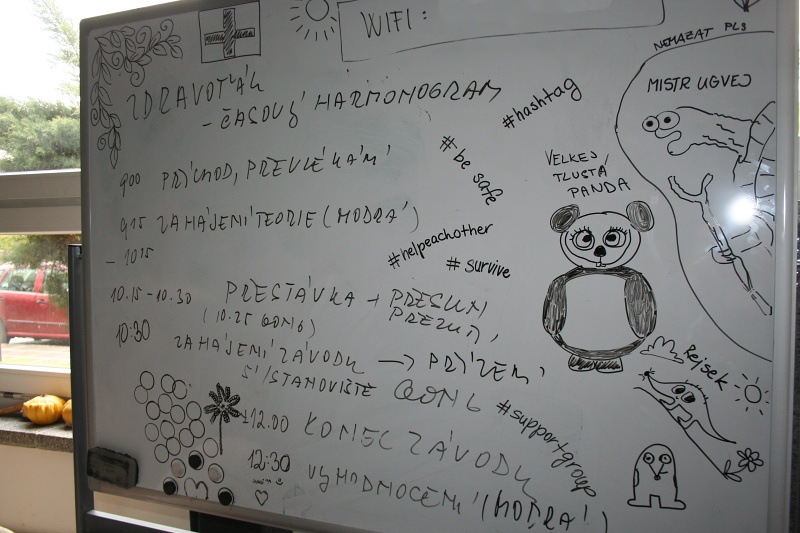 WIFI:
NEMAZAT PL3
MISTR UGVEJ
ZDRAVOŤÁK
- ČASOVÝ HARMONOGRAM
#hashtag
# be safe
VELKEJ
TLUSTÁ
PANDA
900 PŘÍCHOD, PŘEVLÉKÁNÍ
9,15 ZAHÁJENÍ TEORIE (MODRÁ)
- 1015
#helpeachother
# survive
10.15-10.30 PŘESTÁVKA + PŘESUN
PŘEZUTÍ,
(10.25 GONG)
10:30 ZAHÁJENÍ ZÁVODU → PŘÍZEMÍ
5./STANOVIŠTĚ GONG
Rejsek
#supportgroup
±12.00 KONEC ZÁVODU
12:30 VYHODNOCENÍ (MODRÁ)